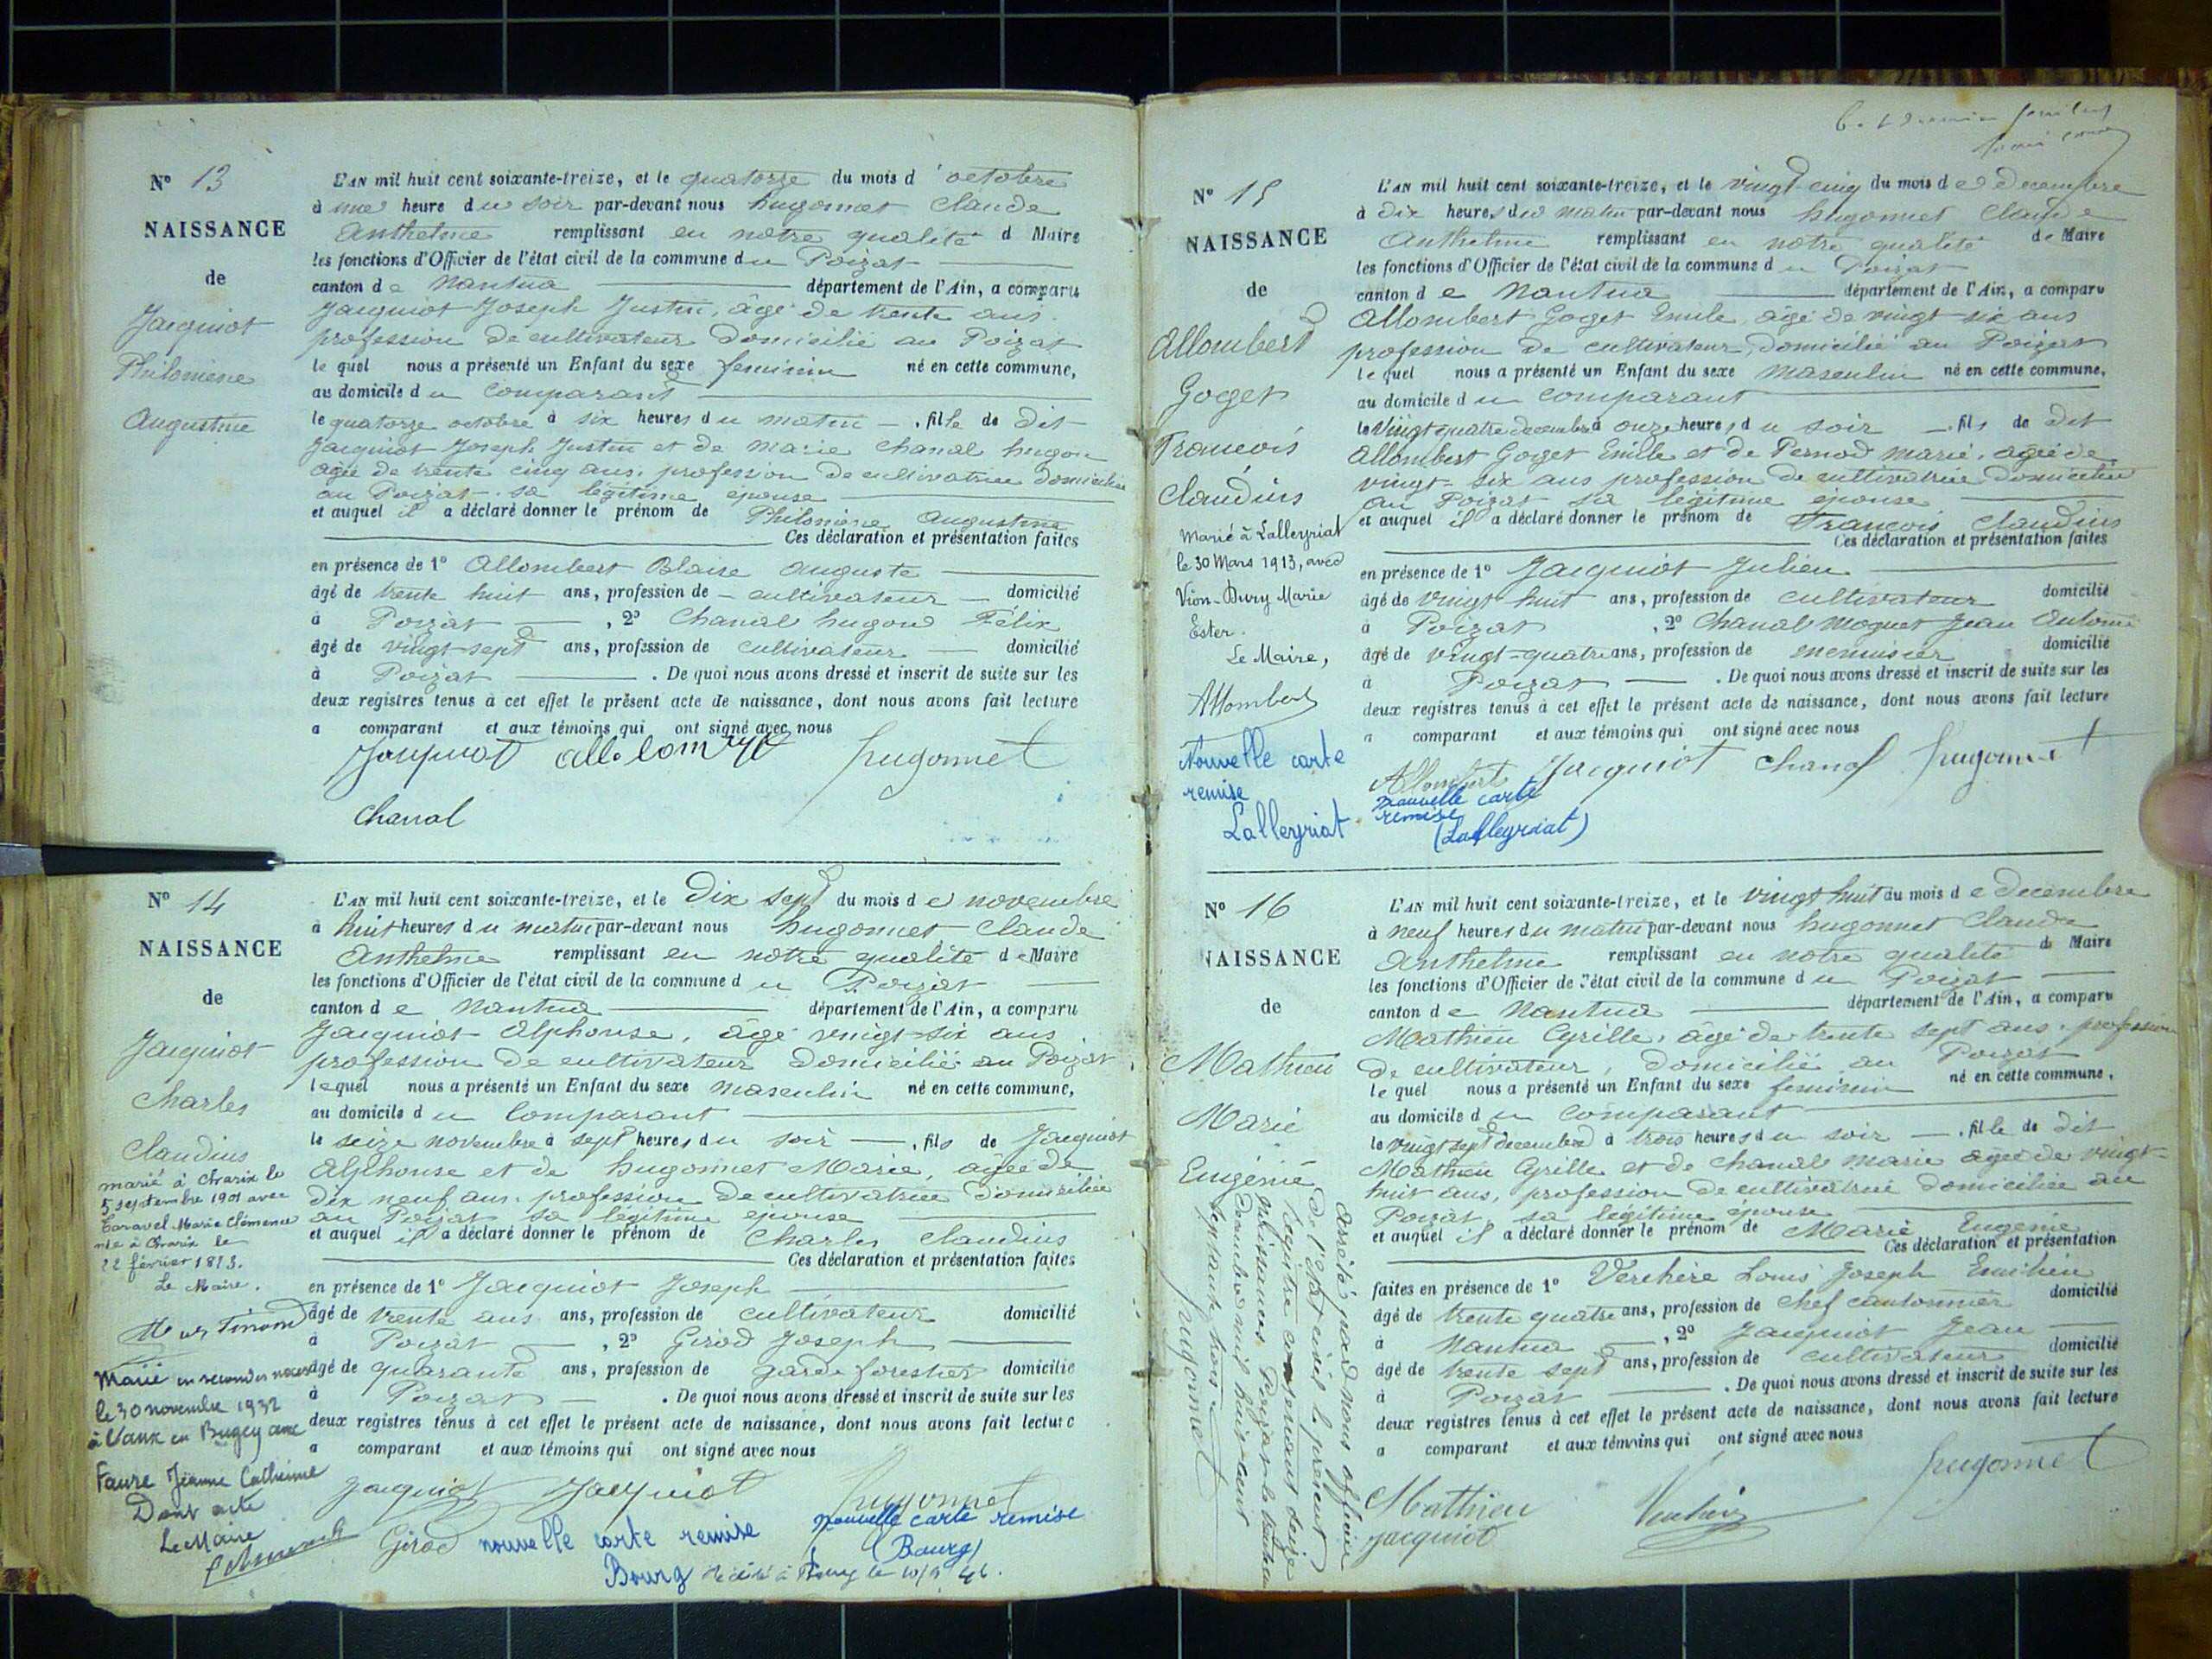 N° 13
NAISSANCE
de
Jacquiot
Philomène
Augustine
L'AN mil huit cent soixante-treize, et le quatorze du mois d'octobre
à une heure du soir par-devant nous hugonnet Claude
Anthelme remplissant en notre qualité d Maire
les fonctions d'Officier de l'état civil de la commune du Poizat
canton de Nantua département de l'Ain, a comparu
Jacquiot Joseph Justin, âgé de trente ans.
profession de cultivateur domicilié au Poizat
lequel nous a présenté un Enfant du sexe feminin né en cette commune,
au domicile du comparant
le quatorze octobre à six heures du matin, fille de dit
Jacquiot Joseph Justin et de Marie Chanal hugon
agée de trente cinq ans, profession de cultivatrice domiciliée
au Poizat sa légitime épouse
et auquel il a déclaré donner le prénom de Philomène Augustine
Ces déclaration et présentation faites
en présence de 1° Allombert Blaise Auguste
âgé de trente huit ans, profession de cultivateur domicilié
à Poizat, 2° Chanal hugon Félix
âgé de vingt-sept ans, profession de cultivateur domicilié
à Poizat. De quoi nous avons dressé et inscrit de suite sur les
deux registres tenus à cet effet le présent acte de naissance, dont nous avons fait lecture
a comparant et aux témoins qui ont signé avec nous
Jacquiot hugonnet
Chanal
N° 14
NAISSANCE
de
Jacquiot
Charles
Claudius
marié à Charix le
5 septembre 1901 avec
Caravel Marie Clémence
née à Charix le
22 février 1873.
Le Maire.
Marié en secondes noces
le 30 novembre 1932
à Vaux en Bugey avec
Faure Jeanne Catherine
Dont acte
Le Maire
L'AN mil huit cent soixante-treize, et le Dix sept du mois de novembre
à huit heures du matin par-devant nous hugonnet Claude
Anthelme remplissant en notre qualité de Maire
les fonctions d'Officier de l'état civil de la commune du Poizat
canton de Nantua département de l'Ain, a comparu
Jacquiot Alphonse, âgé vingt-six ans
profession de cultivateur domicilié au Poizat
lequel nous a présenté un Enfant du sexe masculin né en cette commune,
au domicile du Comparant
le seize novembre à sept heures du soir, fils de Jacquiot
Alphonse et de hugonnet Marie, âgée de
Dix neuf ans. profession de cultivatrice domiciliée
au Poizat sa légitime épouse
et auquel il a déclaré donner le prénom de Charles Claudius
Ces déclaration et présentation faites
en présence de 1° Jacquiot Joseph
âgé de trente ans ans, profession de cultivateur domicilié
à Poizat, 2° Girod Joseph
âgé de quarante ans, profession de garde forestier domicilié
à Poizat. De quoi nous avons dressé et inscrit de suite sur les
deux registres tenus à cet effet le présent acte de naissance, dont nous avons fait lecture
a comparant et aux témoins qui ont signé avec nous
Jacquiot Jacquiot hugonnet
Girod nouvelle carte remise nouvelle carte remise
Bourg (Bourg)
décédé à Bourg le
N° 15
NAISSANCE
de
Allombert
Goget
François
Claudius
Marié à Lalleyriat
le 30 Mars 1913, avec
Vion-Dury Marie
Ester.
Le Maire,
Allombert
Nouvelle carte
remise
Lalleyriat
L'AN mil huit cent soixante-treize, et le vingt-cinq du mois de Decembre
à Dix heures du matin par-devant nous hugonnet Claude
Anthelme remplissant en notre qualité de Maire
les fonctions d'Officier de l'état civil de la commune du Poizat
canton de Nantua département de l'Ain, a comparu
Allombert Goget Emile, âgé de vingt-six ans
profession de cultivateur, domicilié au Poizat
lequel nous a présenté un Enfant du sexe masculin né en cette commune,
au domicile du comparant
le vingt quatre decembre à onze heures du soir, fils de dit
Allombert Goget Emile et de Pernod Marie, agée de
vingt-six ans profession de cultivatrice domiciliée
au Poizat sa légitime épouse
et auquel il a déclaré donner le prénom de François Claudius
Ces déclaration et présentation faites
en présence de 1° Jacquiot Julien
âgé de vingt huit ans, profession de cultivateur domicilié
à Poizat, 2° Chanal Moguet Jean Antoine
âgé de vingt-quatre ans, profession de menuisier domicilié
à Poizat. De quoi nous avons dressé et inscrit de suite sur les
deux registres tenus à cet effet le présent acte de naissance, dont nous avons fait lecture
a comparant et aux témoins qui ont signé avec nous
Allombert Jacquiot Chanal hugonnet
nouvelle carte
remise
(Lalleyriat)
N° 16
NAISSANCE
de
Mathieu
Marie
Eugénie
L'AN mil huit cent soixante-treize, et le vingt huit du mois de Decembre
à neuf heures du matin par-devant nous hugonnet Claude
Anthelme remplissant en notre qualité de Maire
les fonctions d'Officier de l'état civil de la commune du Poizat
canton de Nantua département de l'Ain, a comparu
Mathieu Cyrille, âgé de trente sept ans, profession
de cultivateur, domicilié au Poizat
lequel nous a présenté un Enfant du sexe feminin né en cette commune,
au domicile du comparant
le vingt sept decembre à trois heures du soir, fille de dit
Mathieu Cyrille et de Chanal Marie agée de vingt-
huit ans, profession de cultivatrice domiciliée au
Poizat sa légitime épouse
et auquel il a déclaré donner le prénom de Marie Eugénie
Ces déclaration et présentation
faites en présence de 1° Verchère Louis Joseph Emilien
âgé de trente quatre ans, profession de chef cantonnier domicilié
à Nantua, 2° Jacquiot Jean
âgé de trente sept ans, profession de cultivateur domicilié
à Poizat. De quoi nous avons dressé et inscrit de suite sur les
deux registres tenus à cet effet le présent acte de naissance, dont nous avons fait lecture
a comparant et aux témoins qui ont signé avec nous
hugonnet
Mathieu
Jacquiot
Arrêté par nous officier
de l'Etat civil le présent
registre contenant seize
naissances Poizat le trente un
Decembre mil huit cent
septante trois.
hugonnet